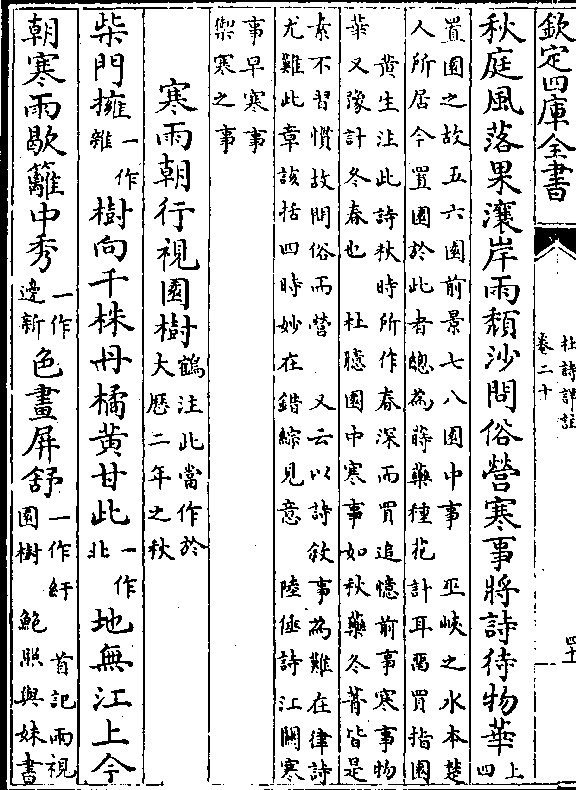 欽定四庫全書
杜詩詳註
卷二十
秋庭風落果瀼岸雨頹沙問俗營寒事將詩待物華上
四
置園之故五六園前景七八園中事 巫峽之水本楚
人所居今置園於此者總為蒔藥種花計耳 買指園
黄生注此詩秋時所作春深而買追憶前事寒事物
華又豫計冬春也 杜臆園中寒事如秋藥冬菁皆是
素不習慣故問俗而營 又云以詩敘事為難在律詩
尤難此章該括四時妙在錯綜見意 陸倕詩江關寒
事早寒事
禦寒之事
寒雨朝行視園樹鶴注此當作於
大厯二年之秋
柴門擁一作
雜樹向千株丹橘黄甘此一作
北地無江上今
朝寒雨歇籬中秀一作
邊新色畫屏舒一作紆
園樹 首記雨視
鮑照與妹書